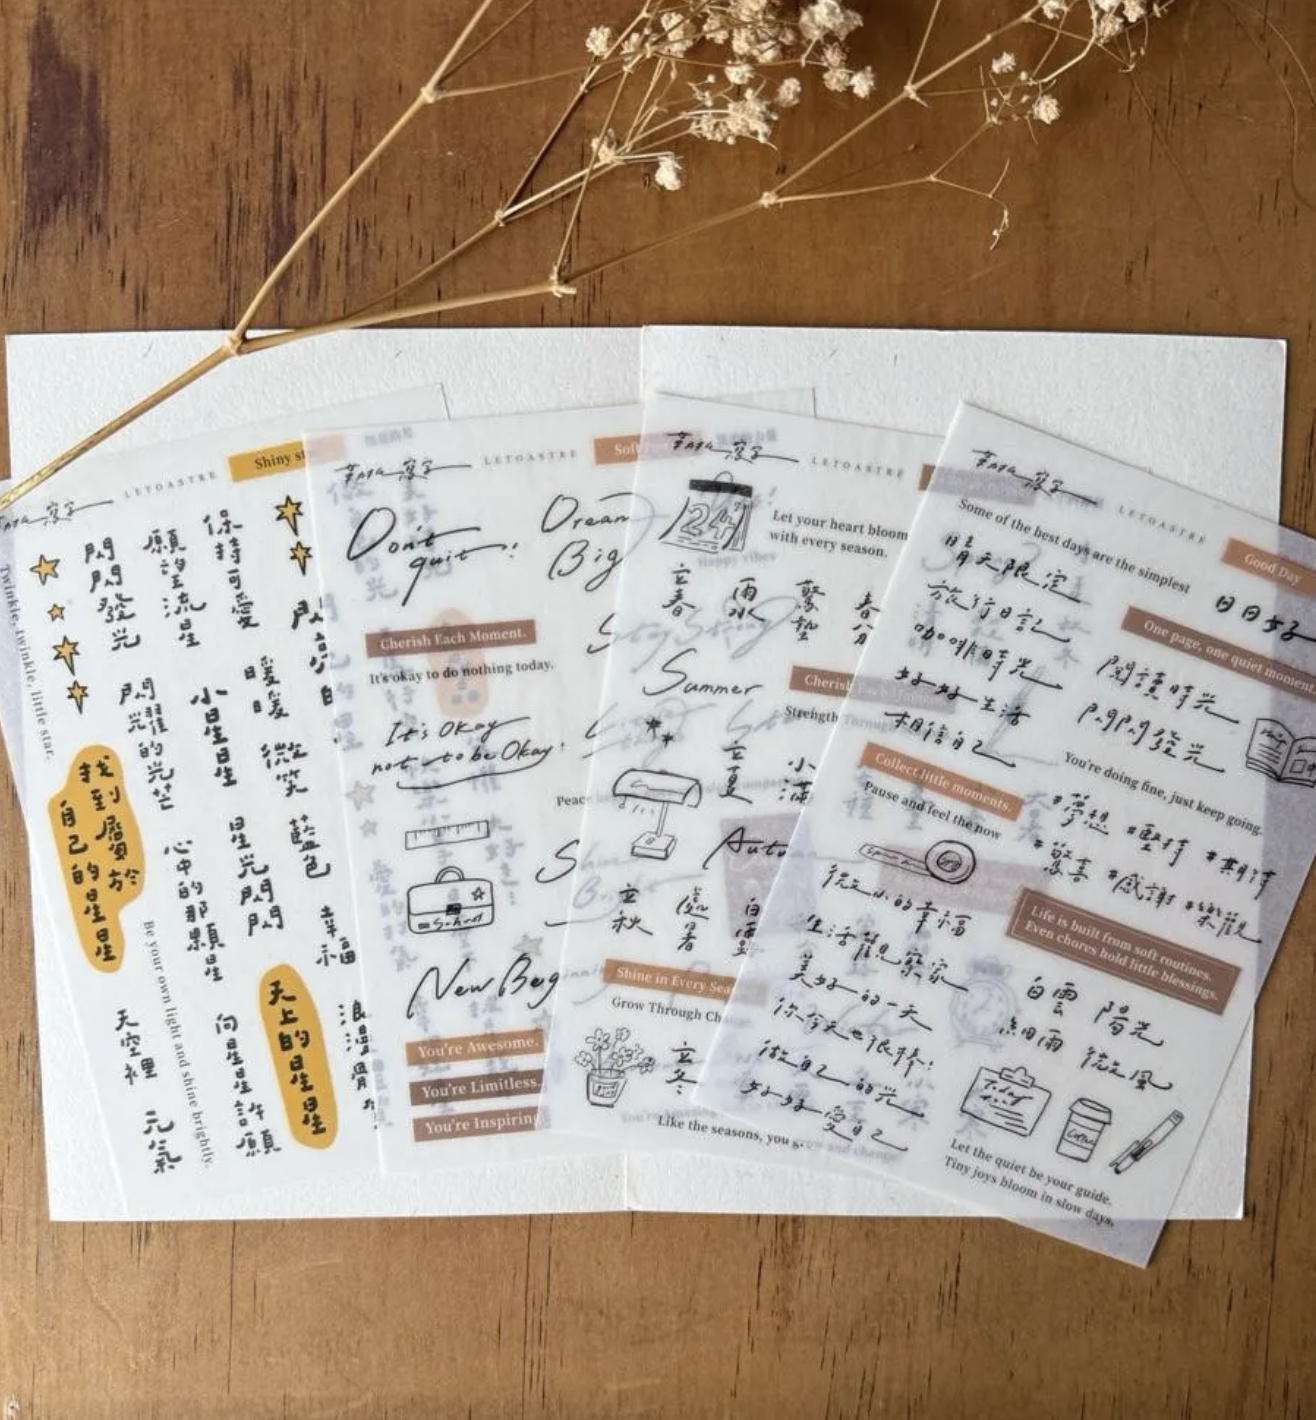 LETOASTRE
Shiny
Twinkle, twinkle, little star.
閃閃發光
願望流星
保持可愛
閃耀的光芒
小星星
暖暖
微笑
找到屬於
自己的星星
心中的那顆星
星光閃閃
藍色
幸福
Be your own light and shine brightly.
天空裡
元氣
向星星許願
天上的星星
浪漫
LETOASTRE
Don't
quit!
Dream
Big
Cherish Each Moment.
It's okay to do nothing today.
It's Okay
not to be Okay!
School
New Beg
You're Awesome.
You're Limitless.
You're Inspiring
LETOASTRE
24
Let your heart bloom
with every season.
立春
雨水
驚蟄
春分
Summer
Cherish
Strength
立夏
小滿
Autu
立秋
處暑
白露
Shine in Every Sea
Grow Through Ch
立冬
Like the seasons, you g
LETOASTRE
Good Day
Some of the best days are the simplest
晴天限定
旅行日記
咖啡時光
好好生活
相信自己
日日好
One page, one quiet moment.
閱讀時光
閃閃發光
You're doing fine, just keep going.
Collect little moments.
Pause and feel the now
#夢想 #堅持 #期待
#驚喜 #感謝 #樂觀
微小的幸福
生活觀察家
美好的一天
你今天也很棒!
做自己的光
好好愛自己
Life is built from soft routines.
Even chores hold little blessings.
白雲 陽光
細雨 微風
Today
Coffee
Let the quiet be your guide.
Tiny joys bloom in slow days.